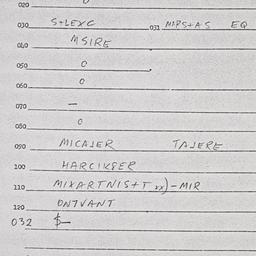 020 0
030 S+LEXC 031 MARS+AS EQ
040 MSIRE
050 0
060 0
070 —
080 0
090 MICALER TALERE
100 HARCIKBER
110 MIXARTNIS+T xx)-MIR
120 ONTVANT
032 $—